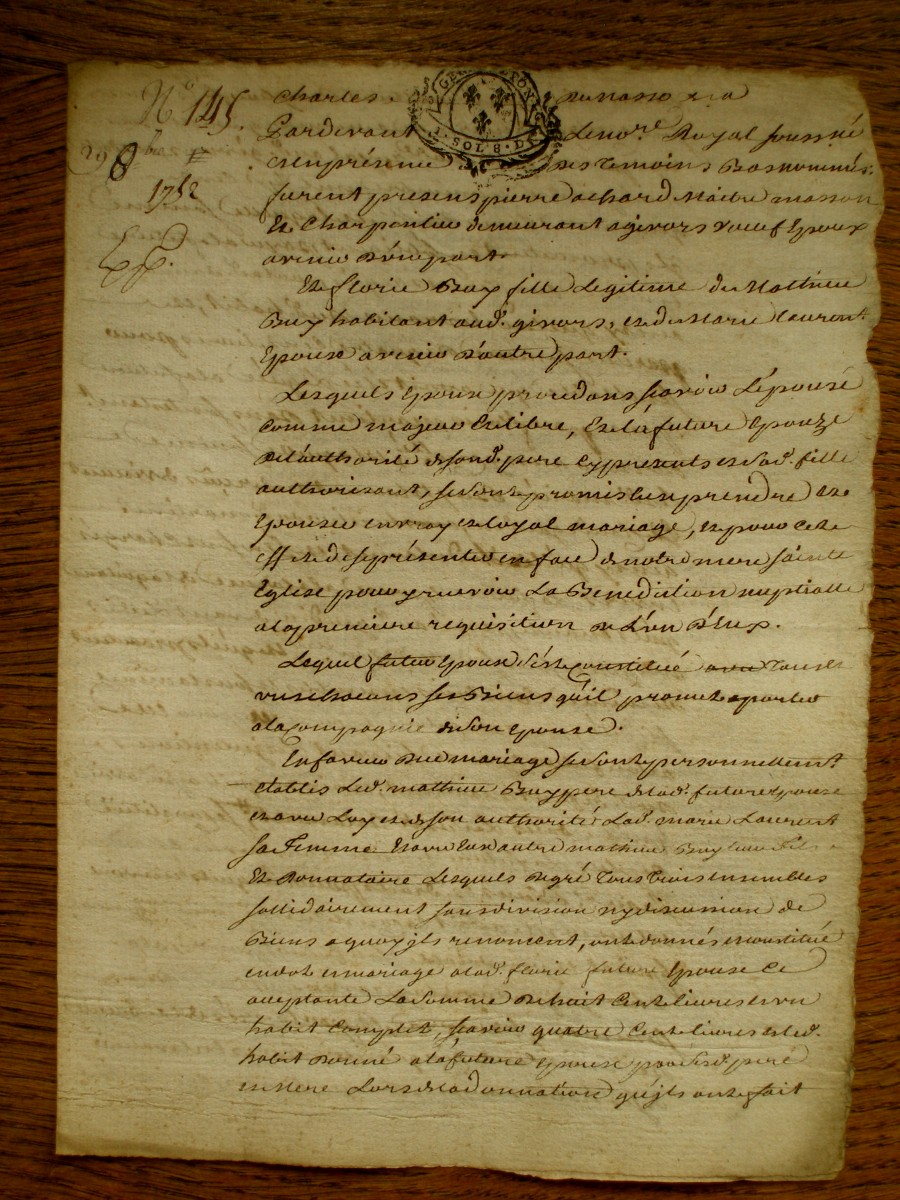 N° 145.
29 8bre
1752
Charles.
GEN LYON
1. SOL 8. D.
Pardevant Le nore. Royal soussné
et en présence des temoins Bas nommés.
furent presens pierre achard Maitre masson
Et Charpentier demeurant a givors Epoux
avenir d'une part.
Et florie Buy fille Legitime de Mathieu
Buy habitant aud. givors, et de Marie Laurent
Epouse avenir d'autre part.
Lesquels Epoux procedans scavoir L'épouse
comme majeur et libre, et la future Epouze
de L'authorité de sond. pere cy present et sad. fille
authorisant, se sont promis prendre et
Epouser en vray et loyal mariage, et pour cet
effet de se présenter en face de notre mere sainte
Eglise pour y recevoir La Benediction nuptialle
a la premiere requisition de L'un d'Eux.
Lequel futur Epoux s'est constitué tous et
un chacuns ses Biens qu'il promet aporter
a la compagnie de son epouse.
En faveur du mariage se sont personnellemt.
établis Led. mathieu Buy pere de lad. future Epouse
et avec Luy et de son authorité Lad. marie Laurent
sa femme Et avec Eux autre mathieu Buy Leur fils
Et Donnataire Lesquels de gré tous trois ensembles
sollidairement sans division ny discussion de
Biens a quoy jls renoncent, ont donnés et constitué
en dot en mariage a lad. florie future Epouse Ce
acceptante La somme de huit Cent livres et un
habit complet, scavoir quatre Cent livres et led.
habit donné a la future epouse par sesd. pere
et mere Lors de la donnation qu'jls ont fait